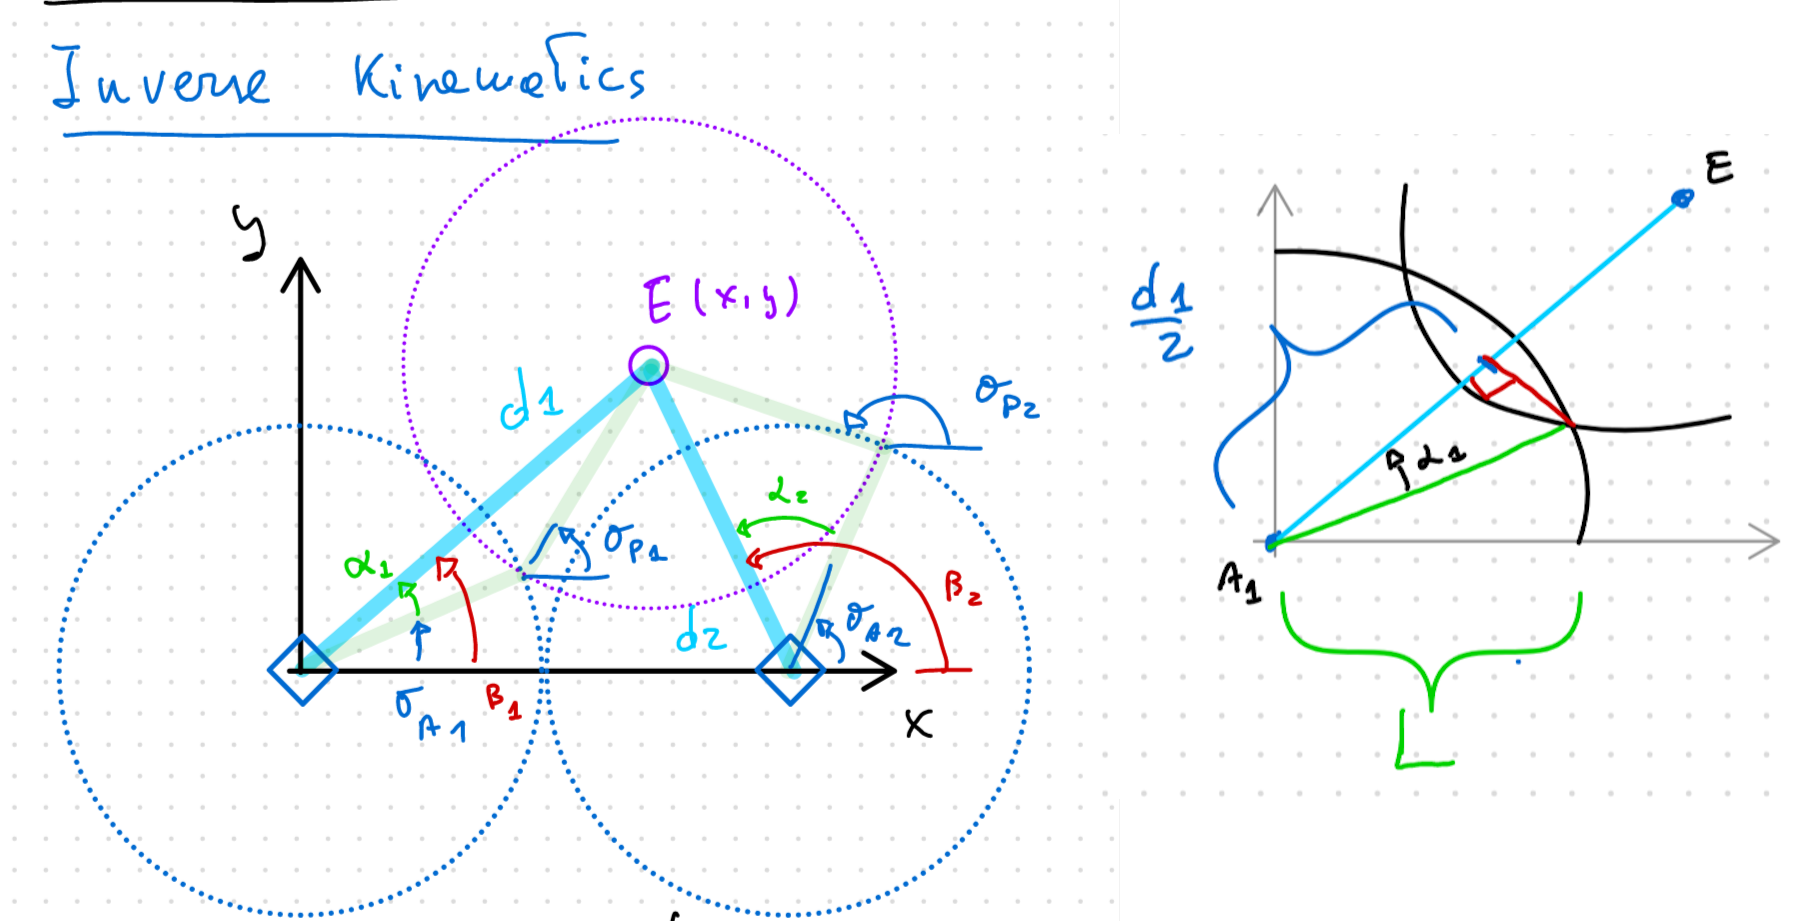 Inverse Kinematics
y
E (x, y)
d1
σP2
α2
σP1
α1
β2
d2
σA2
σA1
β1
x
E
d1/2
α1
A1
L